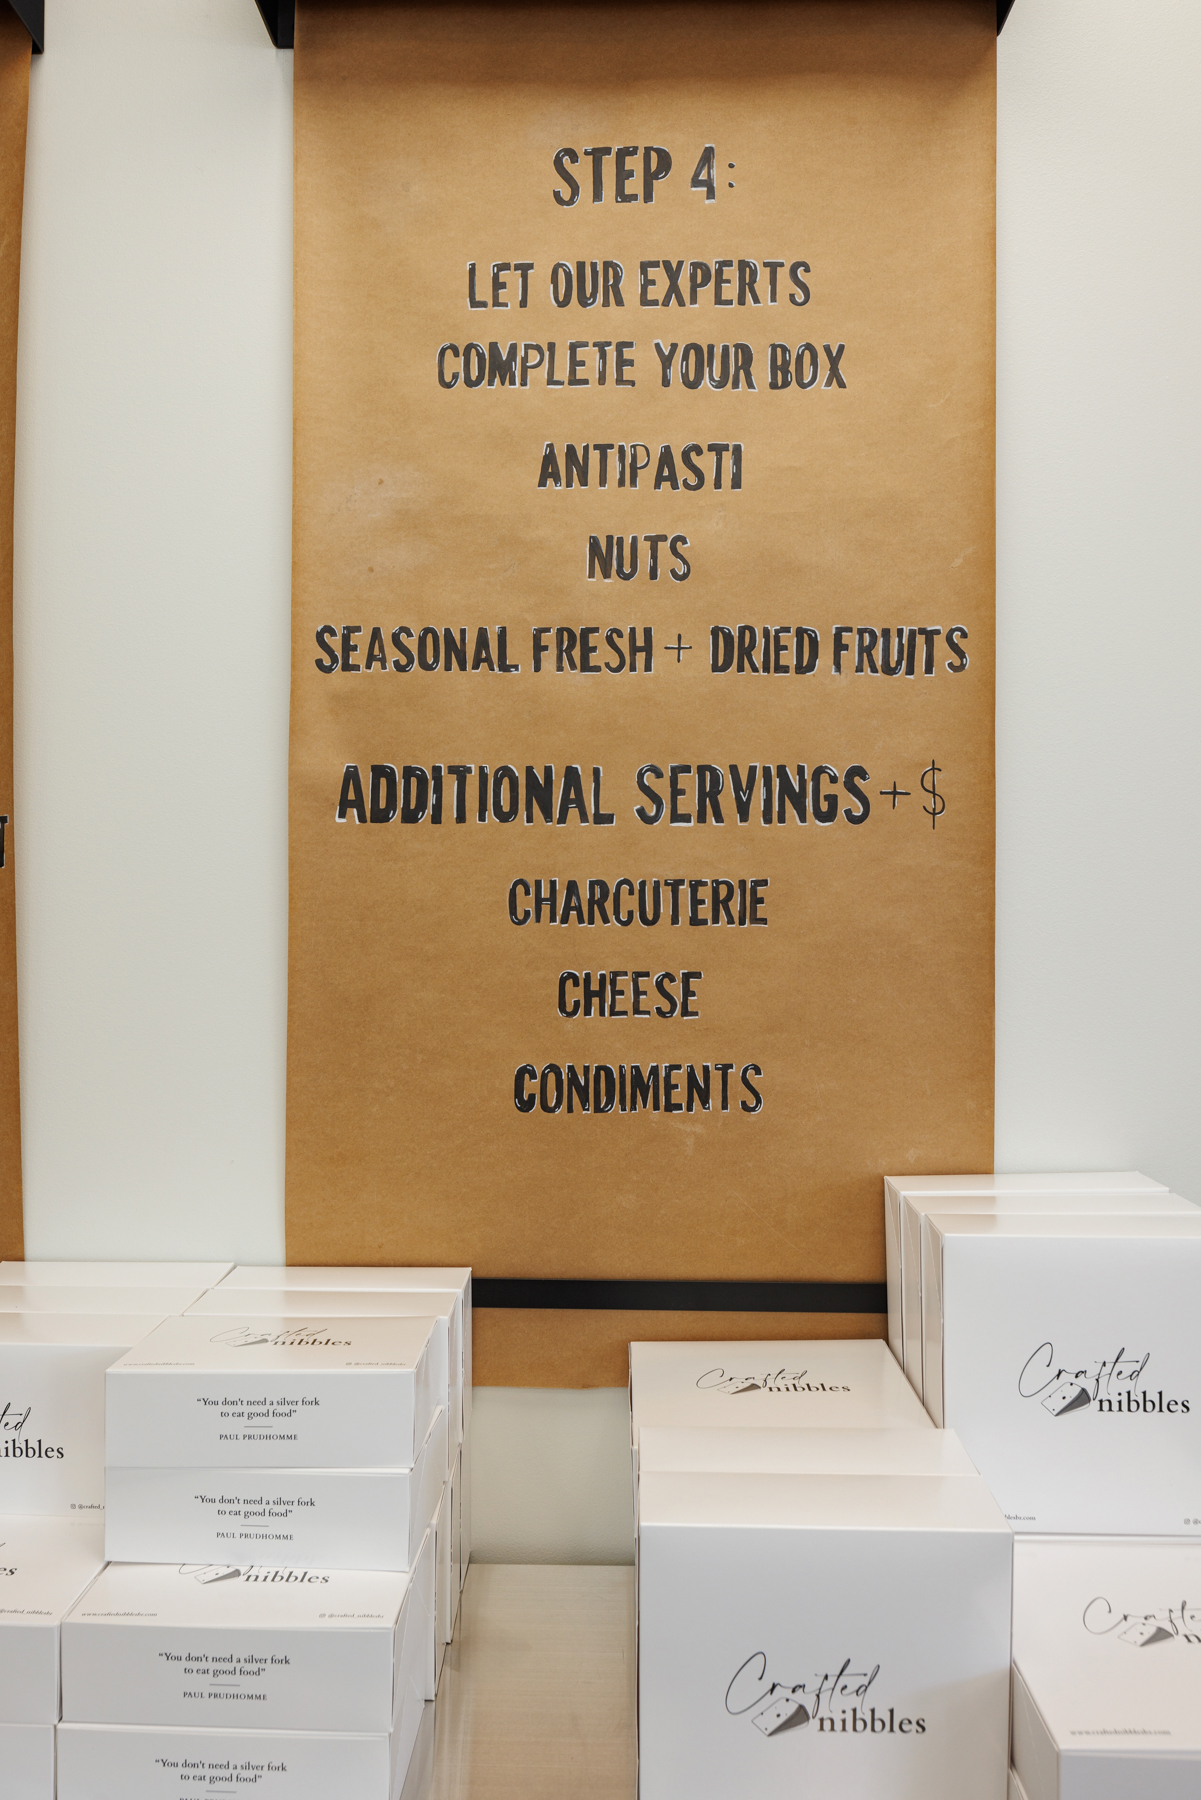 STEP 4:
LET OUR EXPERTS
COMPLETE YOUR BOX
ANTIPASTI
NUTS
SEASONAL FRESH + DRIED FRUITS
ADDITIONAL SERVINGS + $
CHARCUTERIE
CHEESE
CONDIMENTS
Crafted
nibbles
"You don't need a silver fork
to eat good food"
PAUL PRUDHOMME
"You don't need a silver fork
to eat good food"
PAUL PRUDHOMME
nibbles
"You don't need a silver fork
to eat good food"
PAUL PRUDHOMME
"You don't need a silver fork
to eat good food"
Crafted
nibbles
Crafted
nibbles
Crafted
nibbles